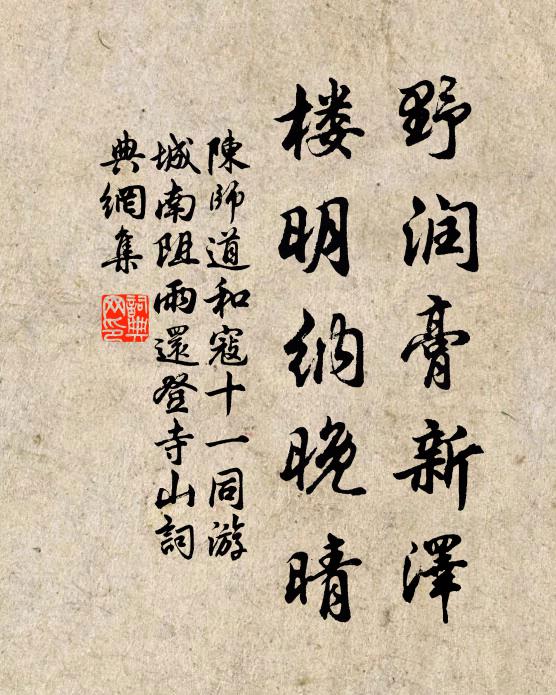 野润膏新澤
楼明纳晚晴
陳師道和寇十一同游
城南阻雨還登寺山詞
典網集
詞典网印